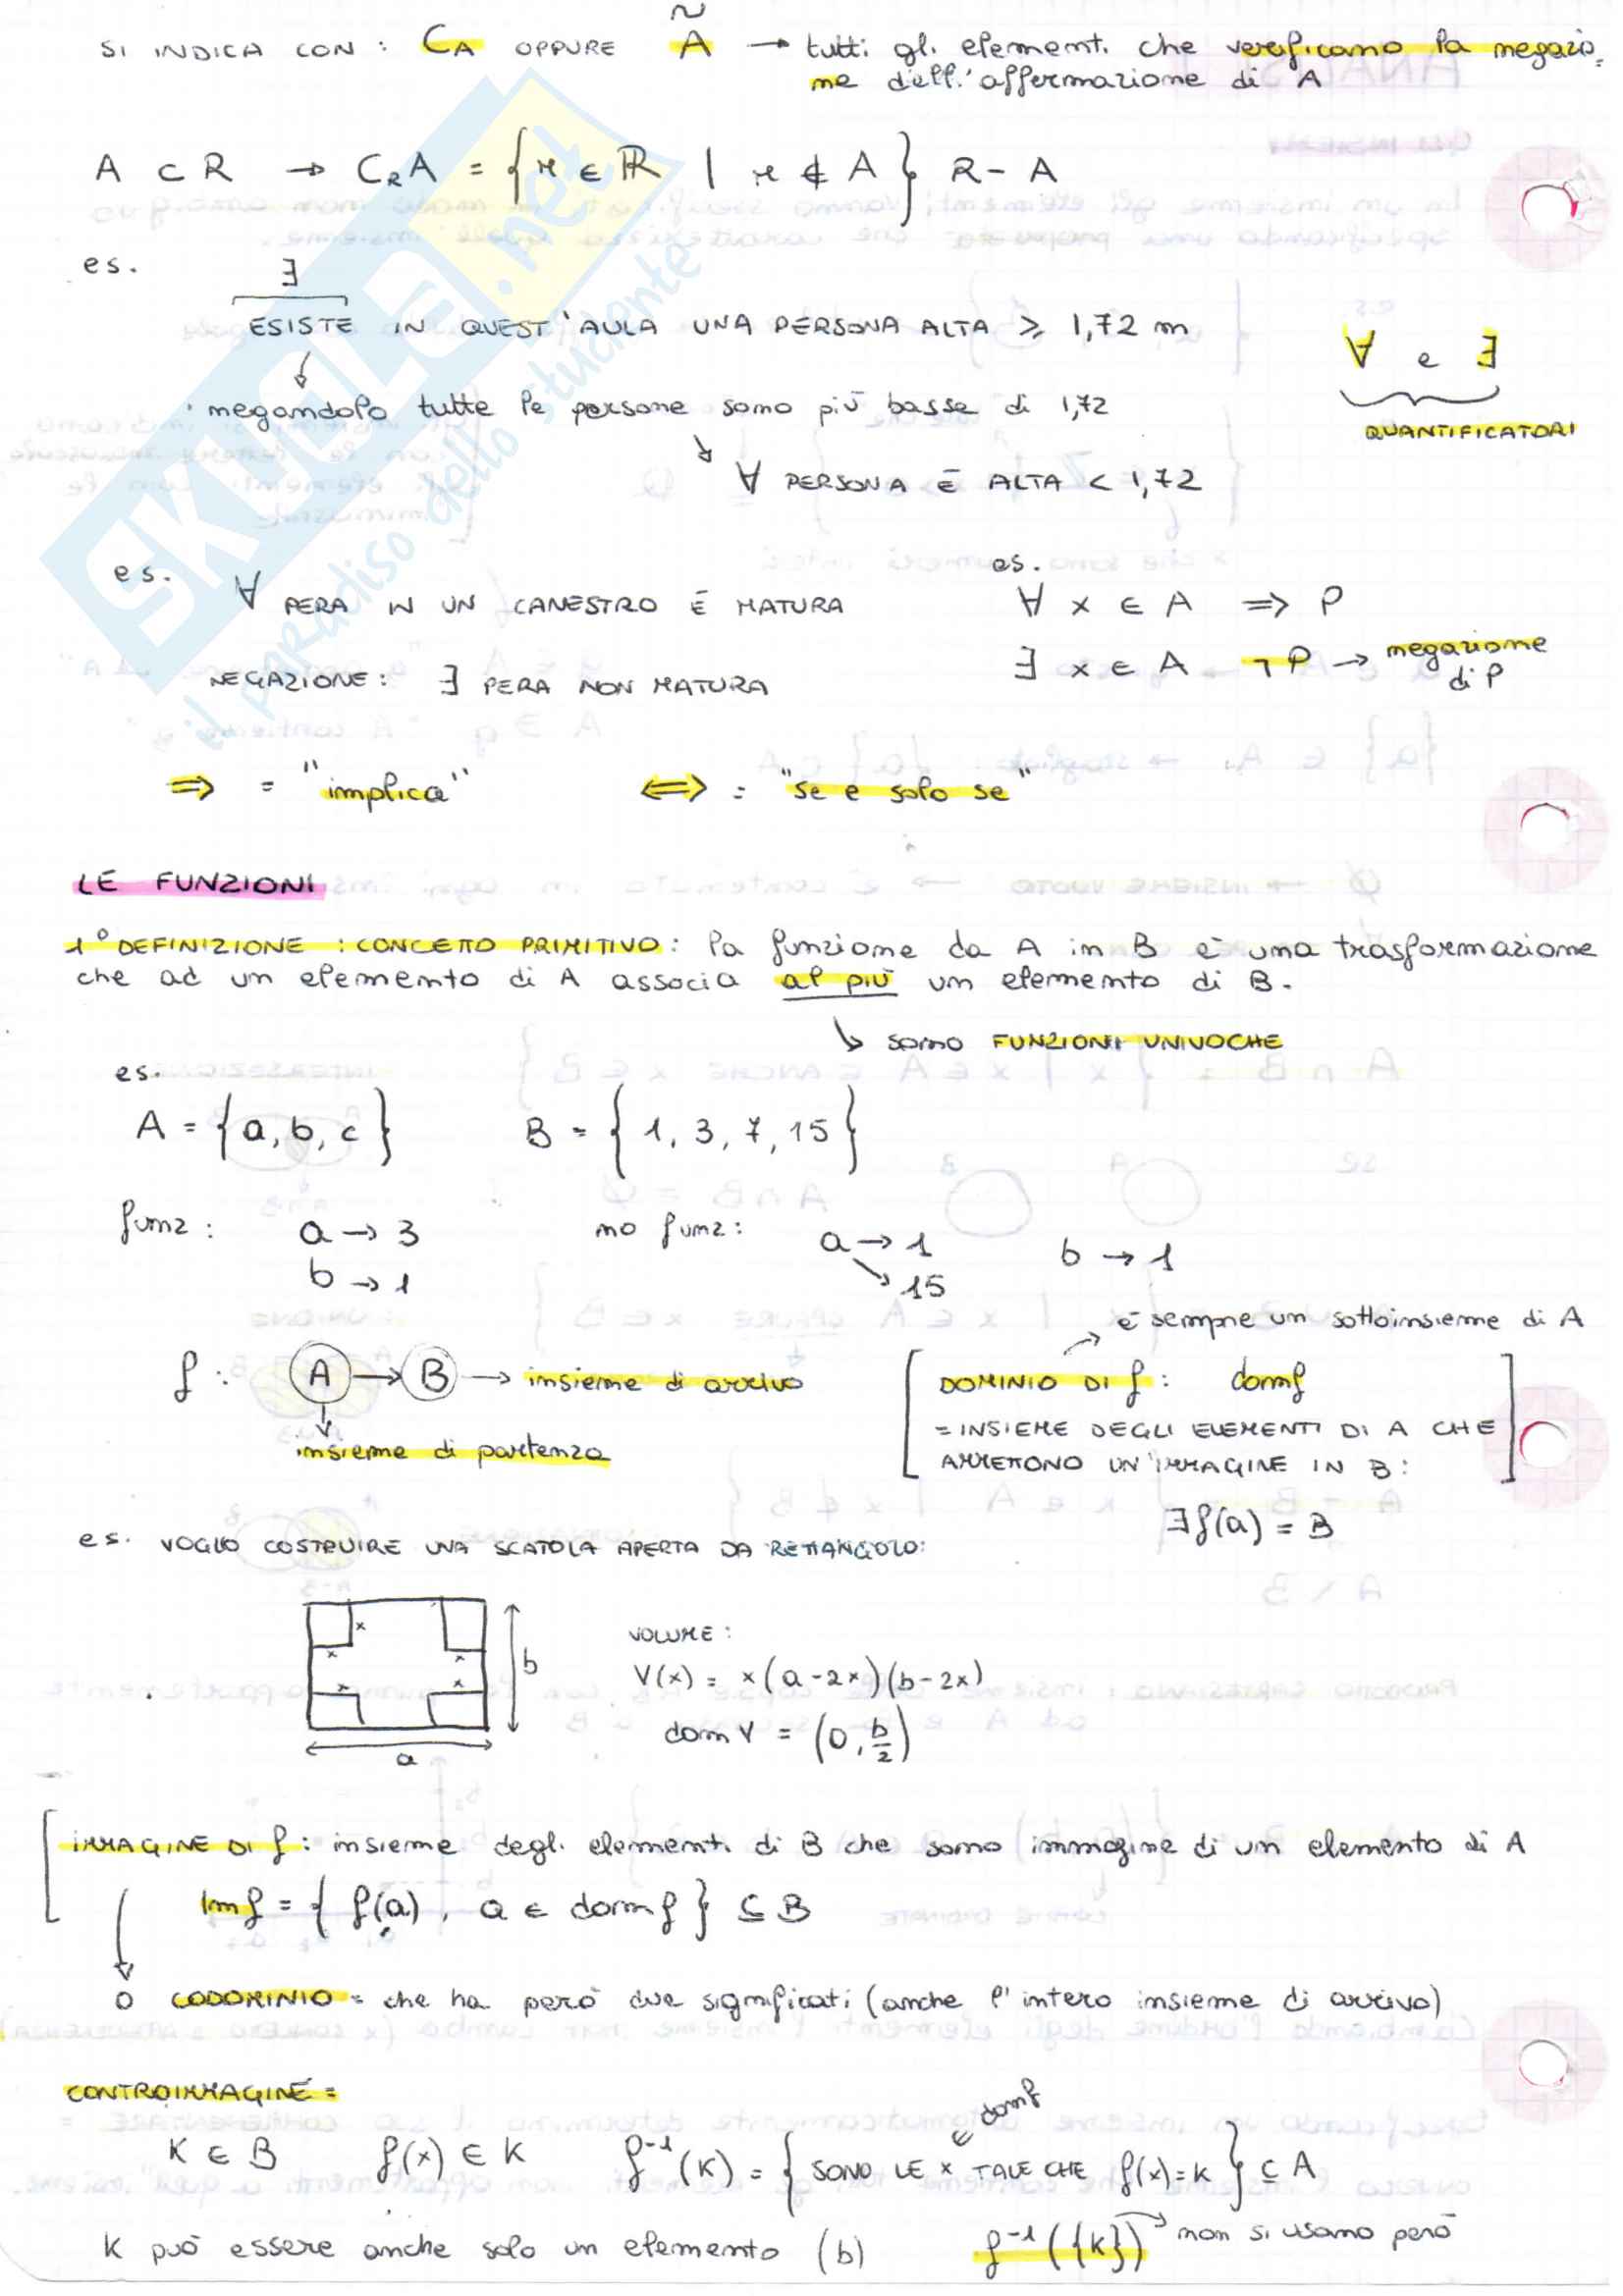 SI INDICA CON : C_A OPPURE Ã → tutti gli elementi che verificano la negazio=
ne dell'affermazione di A
A ⊂ R → C_R A = { x ∈ ℝ | x ∉ A } R - A
es. ∃
ESISTE IN QUEST'AULA UNA PERSONA ALTA ≥ 1,72 m
∀ e ∃
negandolo tutte le persone sono più basse di 1,72
QUANTIFICATORI
↘ ∀ PERSONA È ALTA < 1,72
es. ∀ PERA IN UN CANESTRO È MATURA
NEGAZIONE : ∃ PERA NON MATURA
es.
∀ x ∈ A ⇒ P
∃ x ∈ A ¬P → negazione
di P
⇒ = "implica" ⇔ = "se e solo se"
LE FUNZIONI
1° DEFINIZIONE : CONCETTO PRIMITIVO : la funzione da A in B è una trasformazione
che ad un elemento di A associa al più un elemento di B.
↘ sono FUNZIONI UNIVOCHE
es.
A = { a, b, c } B = { 1, 3, 7, 15 }
funz : a → 3 no funz : a → 1 b → 1
b → 1 ↘ 15
è sempre un sottoinsieme di A
f : A → B → insieme di arrivo
insieme di partenza
DOMINIO DI f : domf
= INSIEME DEGLI ELEMENTI DI A CHE
AMMETTONO UN'IMMAGINE IN B :
∃ f(a) = B
es. VOGLIO COSTRUIRE UNA SCATOLA APERTA DA RETTANGOLO :
x
x x
x x
b
a
VOLUME :
V(x) = x(a-2x)(b-2x)
dom V = (0, b/2)
IMMAGINE DI f : insieme degli elementi di B che sono immagine di un elemento di A
Im f = { f(a), a ∈ domf } ⊆ B
O CODOMINIO = che ha però due significati (anche l'intero insieme di arrivo)
CONTROIMMAGINE =
∈ domf
K ∈ B f(x) ∈ K f⁻¹(K) = { SONO LE x TALE CHE f(x)=K } ⊆ A
K può essere anche solo un elemento (b) f⁻¹({K}) → non si usano però
SKUOLA.net
il paradiso dello studente